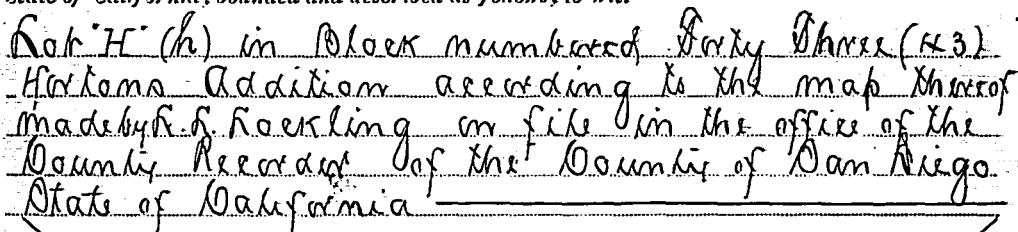 State of California, bounded and described as follows, to-wit:
Lot "H" (h) in Block numbered Forty Three (43)
Hortons Addition according to the map thereof
made by L. L. Lockling on file in the office of the
County Recorder of the County of San Diego
State of California